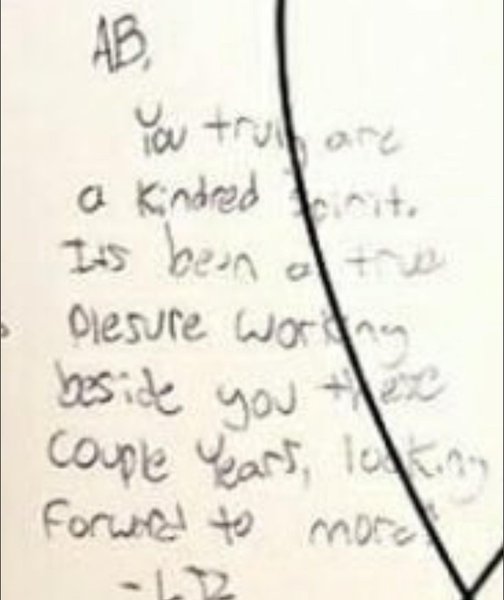 AB,
You truly are
a kindred spirit.
Its been a true
Plesure working
beside you these
couple years, looking
Forward to more!